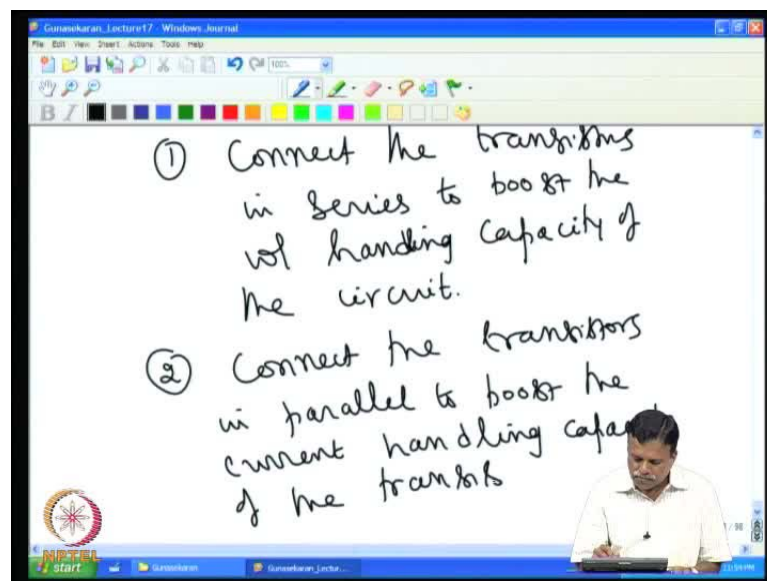 Gunasekaran_Lecture17 - Windows Journal
File Edit View Insert Actions Tools Help
100%
B I
① Connect the transistors
in series to boost the
vol handing capacity of
the circuit.
② Connect the transistors
in parallel to boost the
current handling capac
of the transis
/ 98
NPTEL
start
Gunasekaran
Gunasekaran_Lectur...
11:59 PM